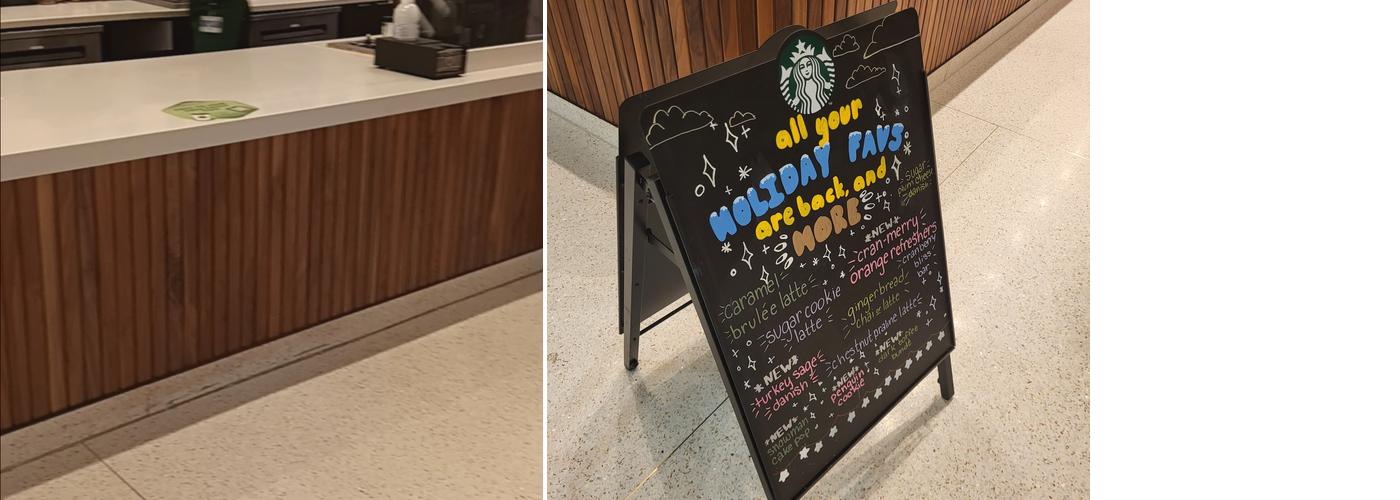 all your
HOLIDAY FAVS
are back, and
MORE
sugar
plum cheese
danish
*NEW*
cran-merry
orange refreshers
cranberry
bliss
bar
caramel
brulée latte
sugar cookie
latte
gingerbread
chai & latte
chestnut praline latte
*NEW*
turkey sage
danish
*NEW*
penguin
cookie
*NEW*
dark toffee
bundt
*NEW*
snowman
cake pop